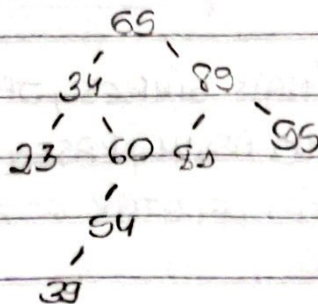 65
34 89
23 60 95
54
39